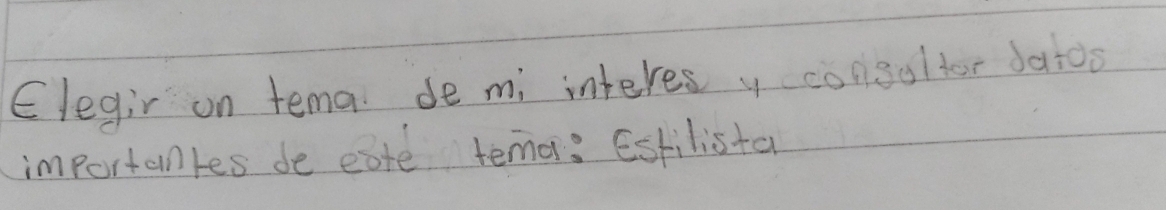 Elegir un tema de mi interes y consultar datos
importantes de este tema: Estilista